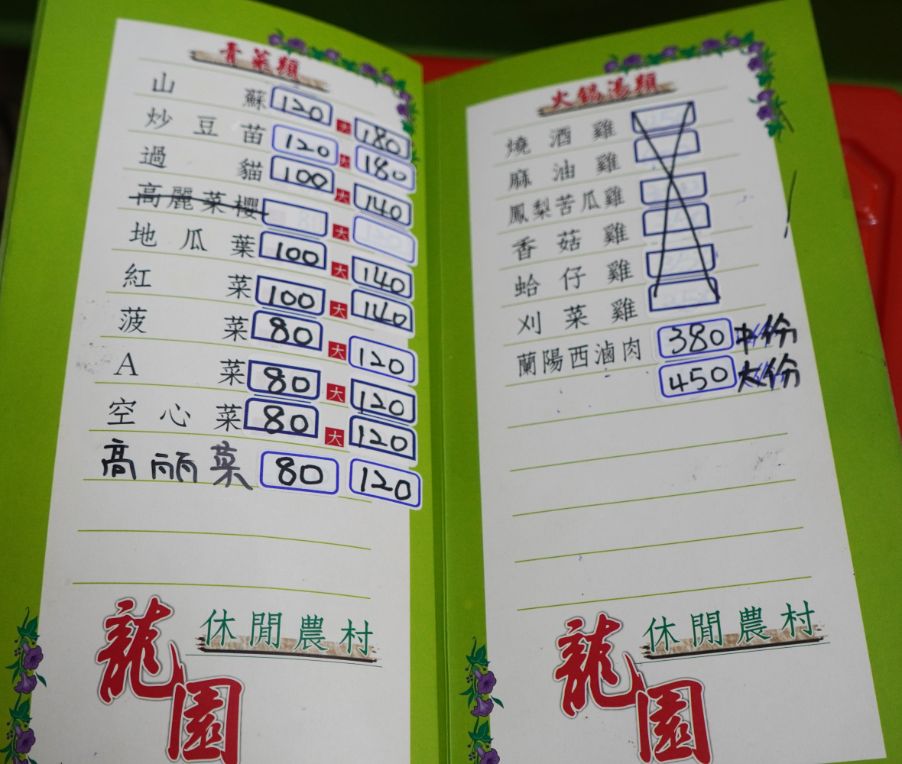 青菜類
山蘇 120 大 180
炒豆苗 120 大 180
過貓 100 大 140
高麗菜櫻 大
地瓜葉 100 大 140
紅菜 100 大 140
菠菜 80 大 120
A菜 80 大 120
空心菜 80 大 120
高丽菜 80 120
龍園 休閒農村
火鍋湯類
燒酒雞
麻油雞
鳳梨苦瓜雞
香菇雞
蛤仔雞
刈菜雞
蘭陽西滷肉 380 中份
450 大份
龍園 休閒農村